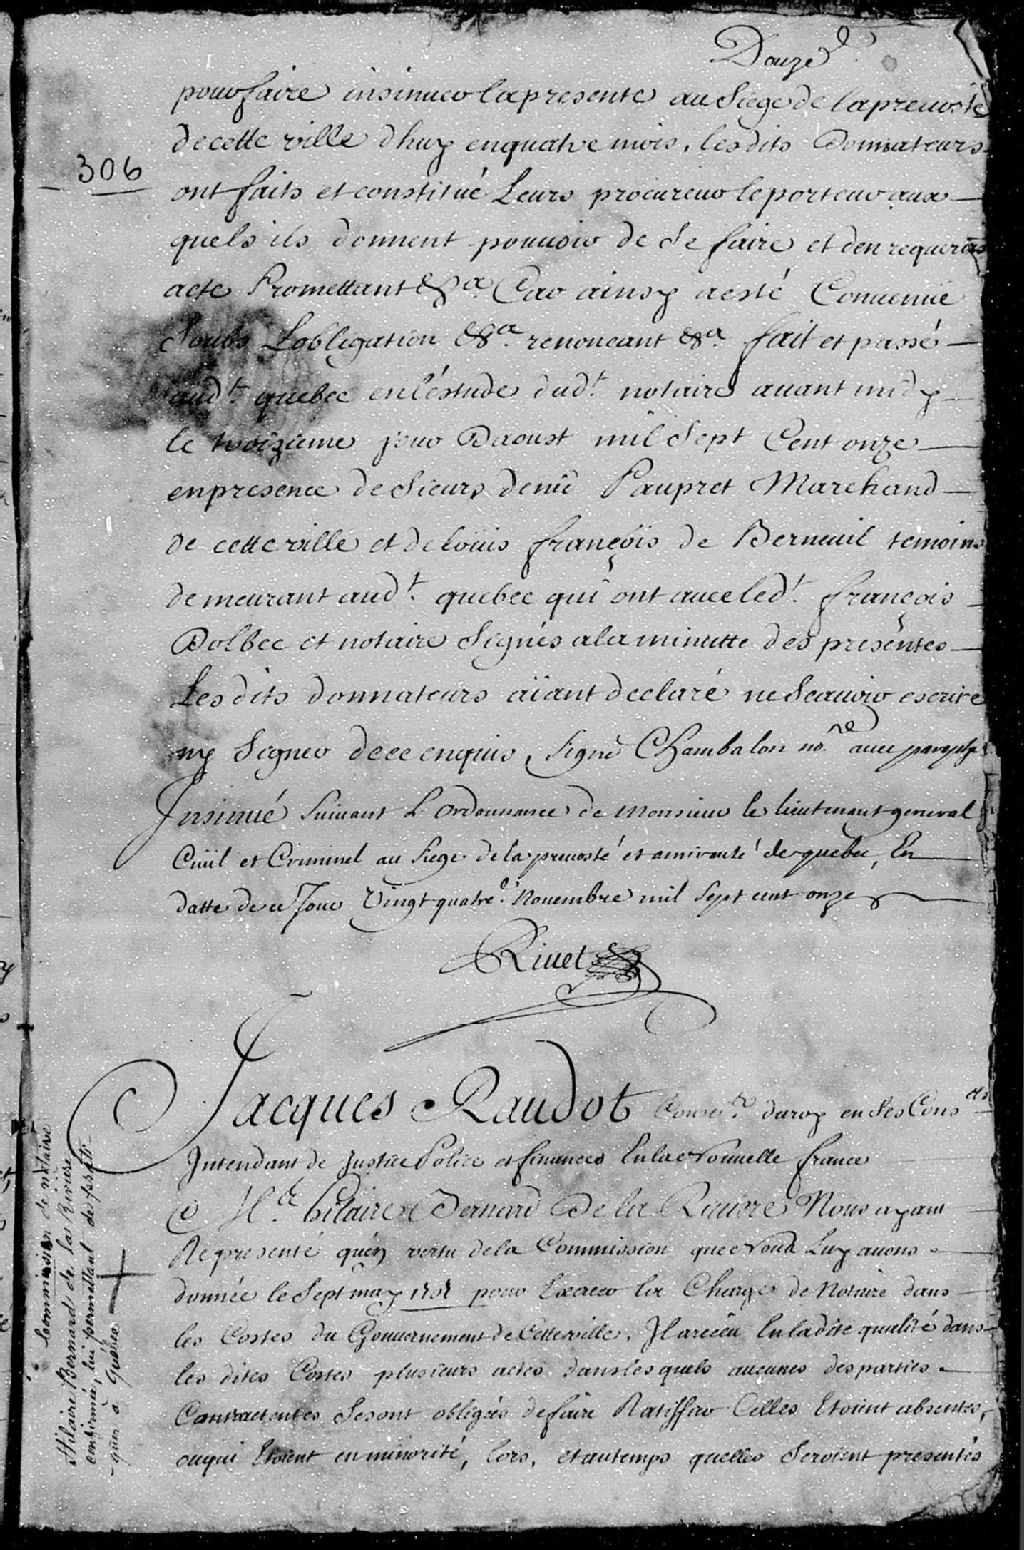 Douze
pour faire insinuer la presente au siege de la prevosté
de cette ville d'huy en quatre mois, les dits Donnateurs
306
ont faits et constitué Leurs procureur le porteur aux
quels ils donnent pouuoir de Se faire et d'en requerir
acte Promettant &a. Car ainsy a esté Conuenüe
Soubs Lobligation &a. renonceant &a. fait et passé
aud.t quebec en l'éstude dud.t notaire auant midy
le troizieme jour Daoust mil Sept Cent onze
en presence de Sieurs denis Paupret Marchand
de cette ville et de loüis françois de Berneuil temoins
demeurant aud.t quebec qui ont auec led.t françois
Dolbec et notaire Signés a la minutte des presentes
Les dits donnateurs aïant declaré ne Scauoir escrire
ny Signer de ce enquis, Signé Chambalon no.re auec paraphe
Insinué Suiuant L'ordonnance de Monsieur le lieutenant general
Ciüil et Criminel au Siege de la preuosté et amirauté de quebec, En
datte de ce Jour Vingt quatre Nouembre mil Sept cent onze
Riuet
Jacques Raudot Conser.r du roy en Ses Cons.els
Intendant de Justice Police et finances En la Nouuelle france
M.e hilaire Bernard De la Riuiere Nous ayant
Representé qu'en vertu de la Commission que Nous Luy auons
donnée le Sept may 1707 pour Exercer la Charge de Notaire dans
les Costes du Gouuernement de Cette ville, Il a receu En ladite qualité dans
les dites Costes plusieurs actes dans lesquels aucunes des parties
Contractantes Se sont obligés de faire Ratiffier Celles Etoient absentes,
ou qui Etoient en minorité, lors, et au temps quelles Seroient presentes
Commission de notaire
Hilaire Bernard de las Rivière
confirmée, lui permettant
qu'en à Québec